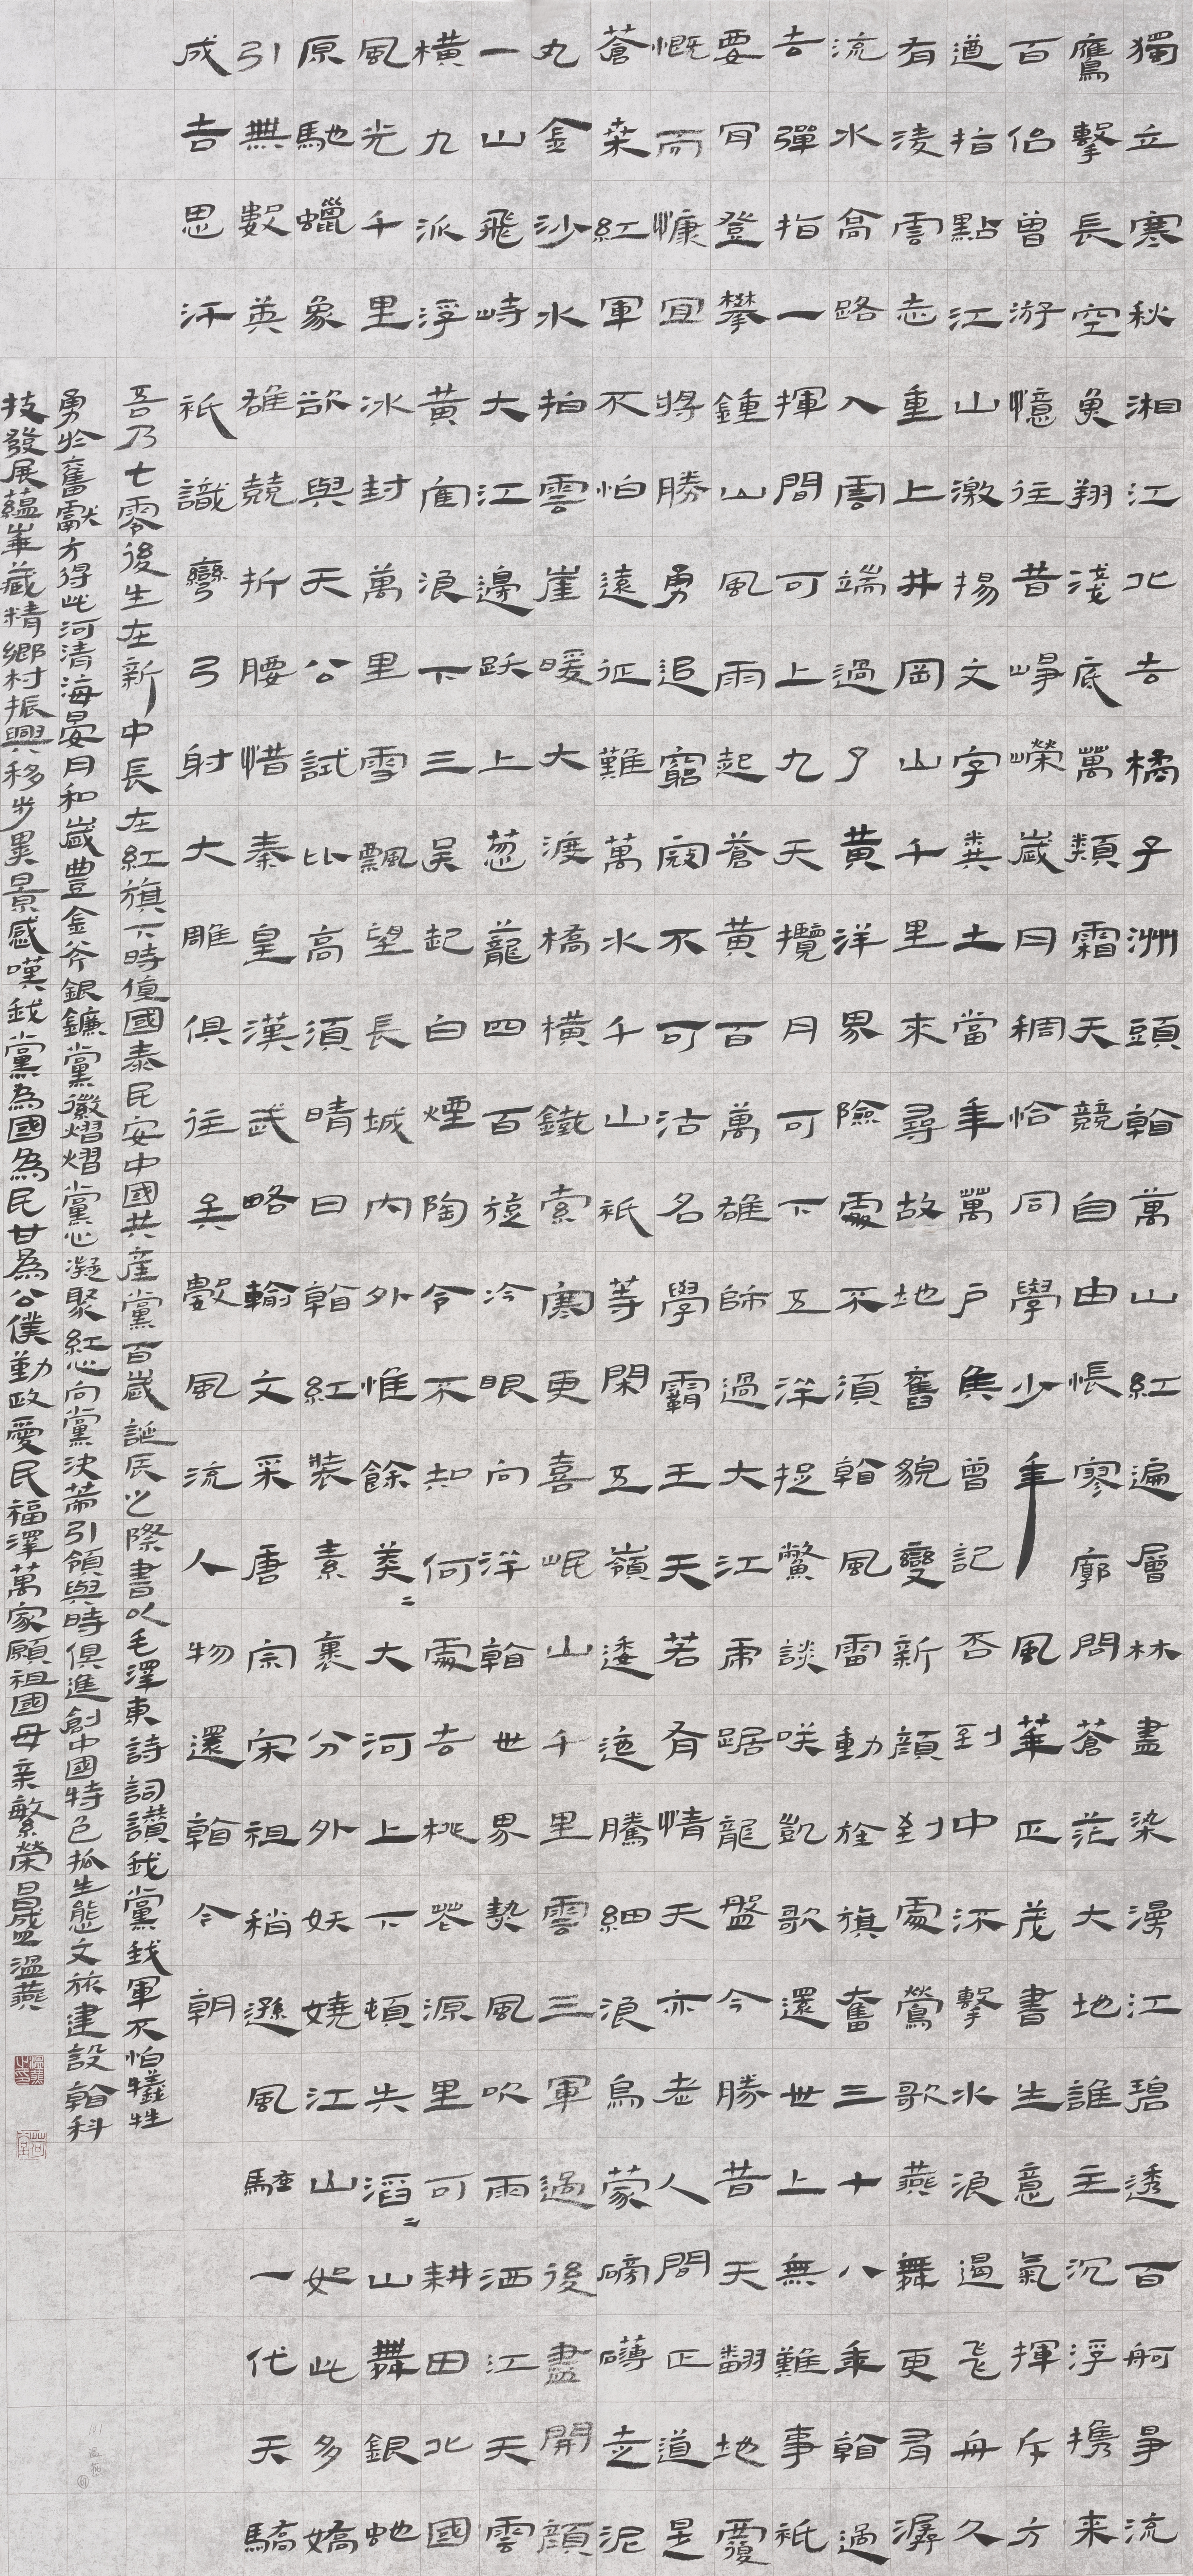 獨立寒秋湘江北去橘子洲頭看萬山紅遍層林盡染漫江碧透百舸爭流
鷹擊長空魚翔淺底萬類霜天競自由悵寥廓問蒼茫大地誰主沉浮攜来
百侶曾游憶往昔崢嶸歲月稠恰同學少年風華正茂書生意氣揮斥方
遒指點江山激揚文字糞土當年萬戶侯曾記否到中流擊水浪遏飛舟久
有淩雲志重上井岡山千里來尋故地舊貌變新顏到處鶯歌燕舞更有潺
流水高路入雲端過了黃洋界險處不須看風雷動旌旗奮三十八年看過
去彈指一揮間可上九天攬月可下五洋捉鱉談笑凱歌還世上無難事祇
要肯登攀鍾山風雨起蒼黃百萬雄師過大江虎踞龍盤今勝昔天翻地覆
慨而慷宜將勝勇追窮寇不可沽名學霸王天若有情天亦老人間正道是
蒼桑紅軍不怕遠征難萬水千山祇等閑五嶺逶迤騰細浪烏蒙磅礴走泥
丸金沙水拍雲崖暖大渡橋橫鐵索寒更喜岷山千里雲三軍過後盡開顏
一山飛峙大江邊跃上葱蘢四百旋冷眼向洋看世界熱風吹雨洒江天雲
橫九派浮黃鶴浪下三吳起白煙陶令不知何處去桃花源里可耕田北國
風光千里冰封萬里雪飄望長城内外惟餘莽〻大河上下頓失滔〻山舞銀蛇
原馳蠟象欲與天公試比高須晴日看紅裝素裹分外妖嬈江山如此多嬌
引無數英雄競折腰惜秦皇漢武略輸文采唐宗宋祖稍遜風騷一代天驕
成吉思汗祇識彎弓射大雕俱往矣數風流人物還看今朝
吾乃七零後生在新中長在紅旗下時值國泰民安中國共産黨百歲誕辰之際書以毛澤東詩詞讚我黨我軍不怕犧牲
勇於奮獻方得此河清海晏月和歲豐金斧銀鐮黨徽熠熠黨心凝聚紅心向黨決策引領與時俱進創中國特色抓生態文旅建設看科
技發展蘊華藏精鄉村振興移步異景感嘆我黨為國為民甘為公僕勤政愛民福澤萬家願祖國母亲繁榮昌盛溫燕